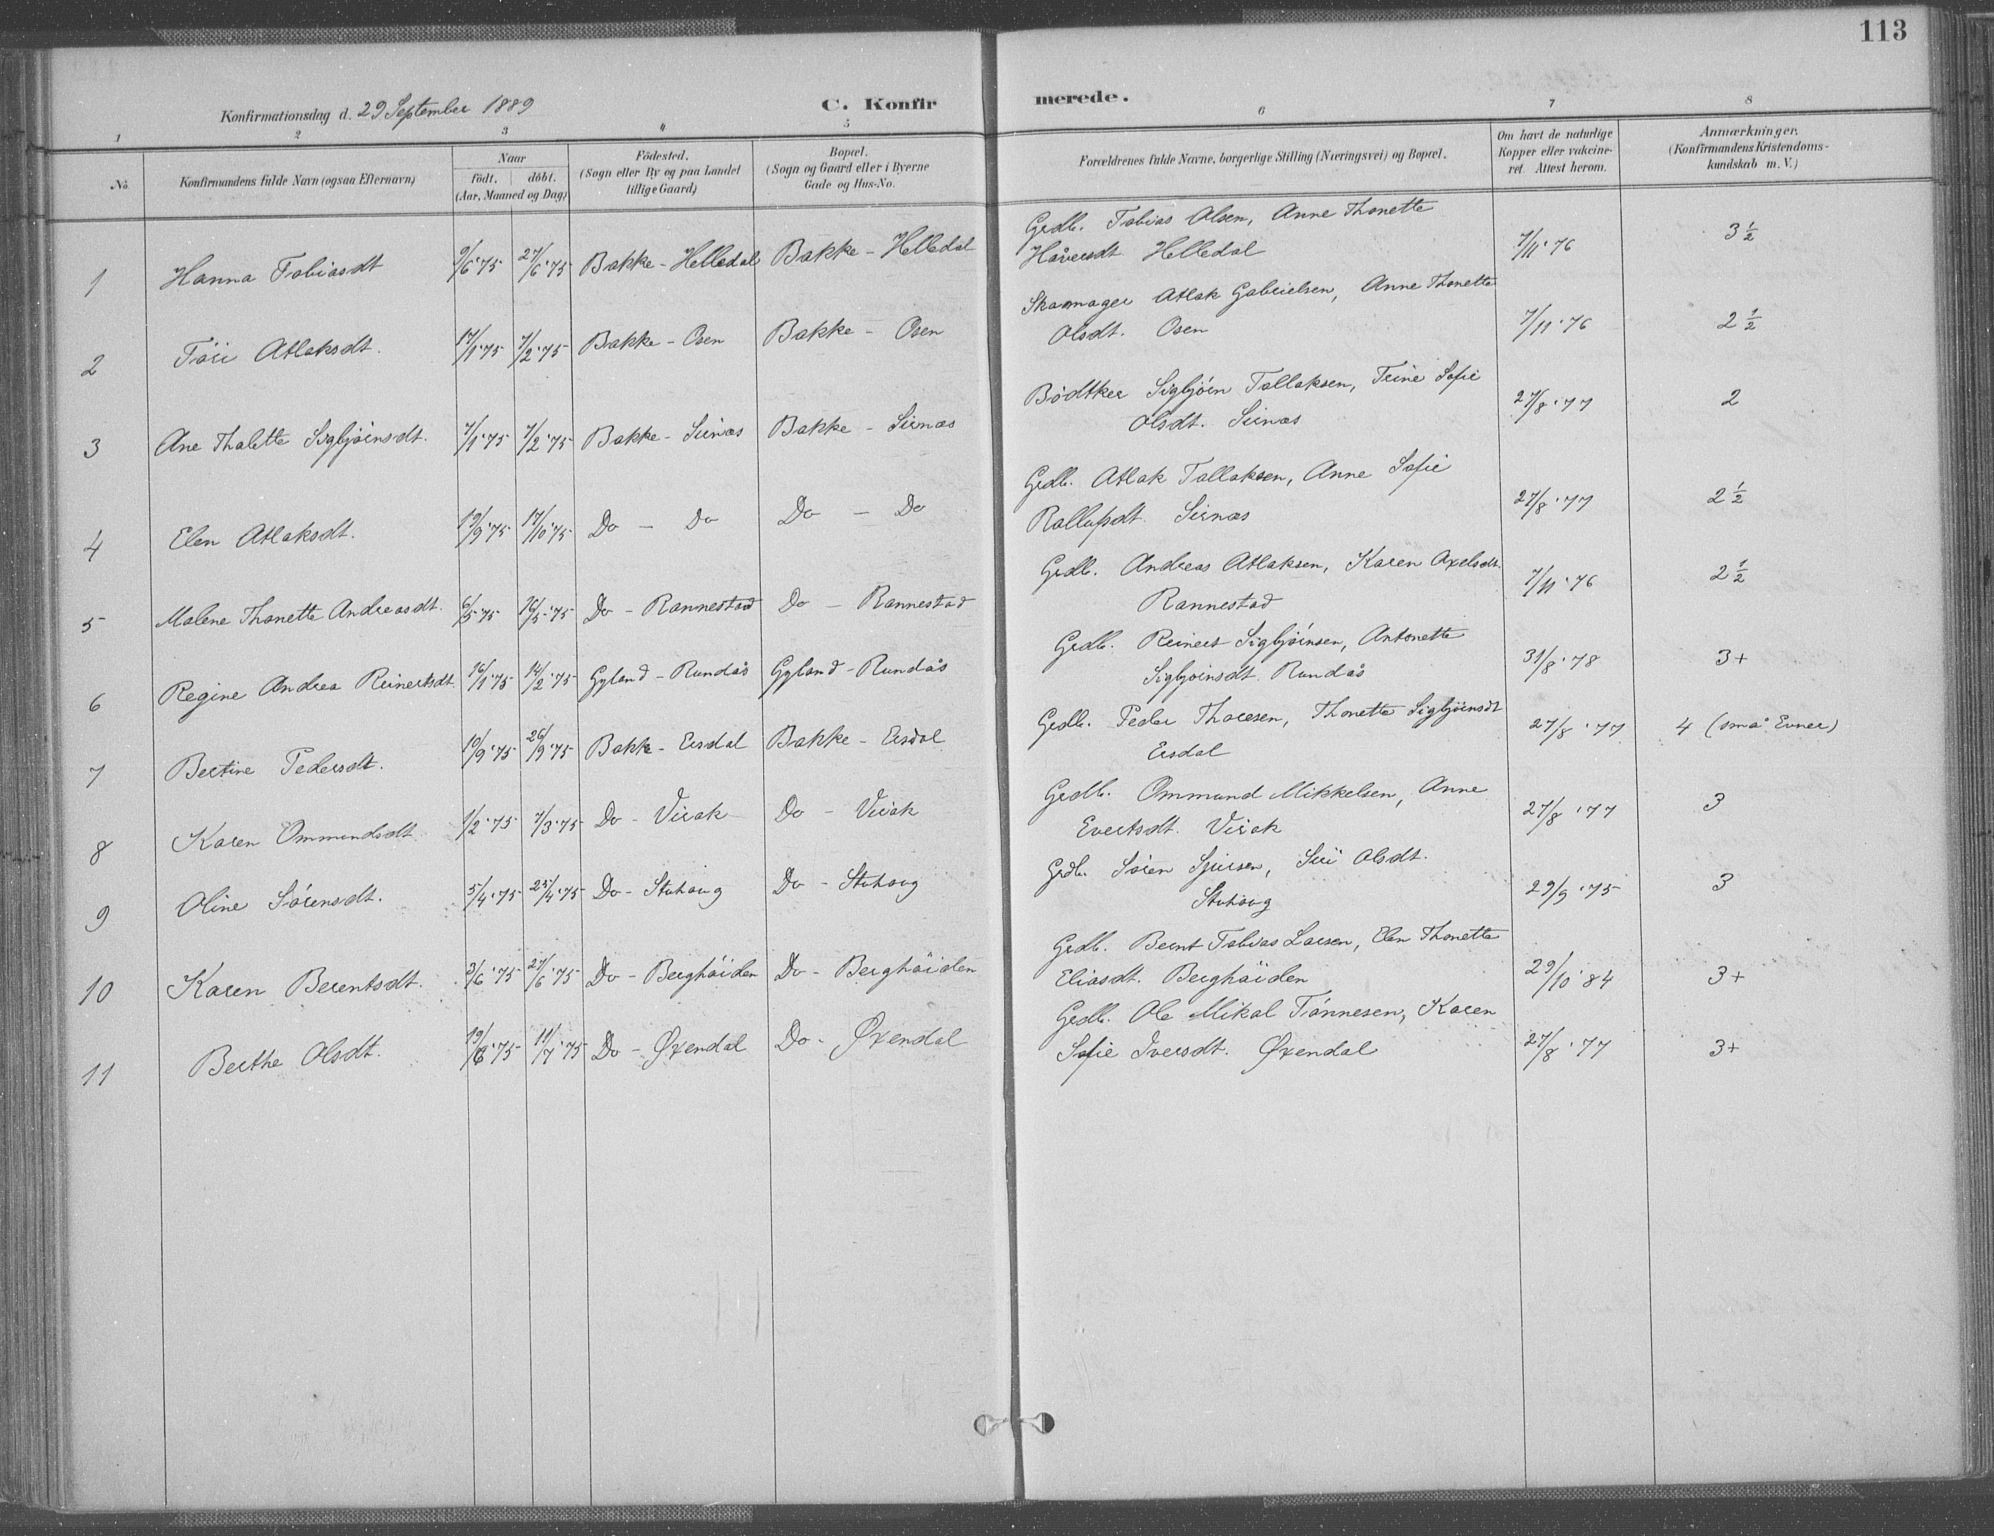 113
Konfirmationsdag d. 29 September 1889
C. Konfirmerede.
1 2 3 4 5 6 7 8
No. | Konfirmandens fulde Navn (ogsaa Efternavn) | Naar født. | døbt. (Aar, Maaned og Dag) | Fødested. (Sogn eller By og paa Landet tillige Gaard) | Bopæl. (Sogn og Gaard eller i Byerne Gade og Hus-No. | Forældrenes fulde Navne, borgerlige Stilling (Næringsvei) og Bopæl. | Om havt de naturlige Kopper eller vakcineret. Attest herom. | Anmærkninger. (Konfirmandens Kristendomskundskab m. V.)
1 Hanna Tobiasdt 9/6 '75 27/6 '75 Bakke - Helledal Bakke - Helledal Grdb. Tobias Olsen, Anne Thonette
Håversdt Helledal 7/11 '76 3 1/2
2 Töri Atlaksdt. 17/1 '75 7/2 '75 Bakke - Osen Bakke - Osen Skomager Atlak Gabrielsen, Anne Thonette
Olsdt. Osen 7/11 '76 2 1/2
3 Ane Thalette Sigbjörnsdt. 7/1 '75 7/2 '75 Bakke - Sirnæs Bakke - Sirnæs Bödtker Sigbjörn Tallaksen, Trine Sofie
Olsdt. Sirnæs 27/8 '77 2
4 Elen Atlaksdt. 19/9 '75 17/10 '75 Do - Do Do - Do Grdb. Atlak Tallaksen, Anne Sofie
Sirnæs 27/8 '77 2 1/2
5 Malene Thonette Andreasdt. 6/5 75 16/5 '75 Do - Rannestad Do - Rannestad Grdb. Andreas Atlaksen, Karen Axelsdt.
Rannestad 7/11 '76 2 1/2
6 Regine Andrea Reinertsdt. 16/1 '75 14/2 '75 Gyland - Rundås Gyland - Rundås Grdb. Reinert Sigbjörnsen, Antonette
Sigbjörnsdt. Rundås 31/8 '78 3+
7 Bertine Pedersdt. 10/9 '75 26/9 '75 Bakke - Ersdal Bakke - Ersdal Grdb. Peder Thoresen, Thonette Sigbjörnsdt
Ersdal 27/8 '77 4 (små Evner)
8 Karen Ommundsdt. 1/2 '75 7/3 '75 Do - Virak Do - Virak Grdb. Ommund Mikkelsen, Anne
Evertsdt. Virak 27/8 '77 3
9 Oline Sörensdt. 5/4 '75 25/4 '75 Do - Stuhoug Do - Stuhoug Grdb. Sören Sjursen, Siri Olsdt.
Stuhoug 29/9 '75 3
10 Karen Berentsdt. 3/6 '75 27/6 '75 Do - Berghöiden Do - Berghöiden Grdb. Bernt Tobias Larsen, Elen Thonette
Eliasdt. Berghöiden 29/10 '84 3+
11 Berthe Olsdt. 19/6 '75 11/7 '75 Do - Øxendal Do - Øxendal Grdb. Ole Mikal Tönnesen, Karen
Sofie Iversdt. Øxendal 27/8 '77 3+